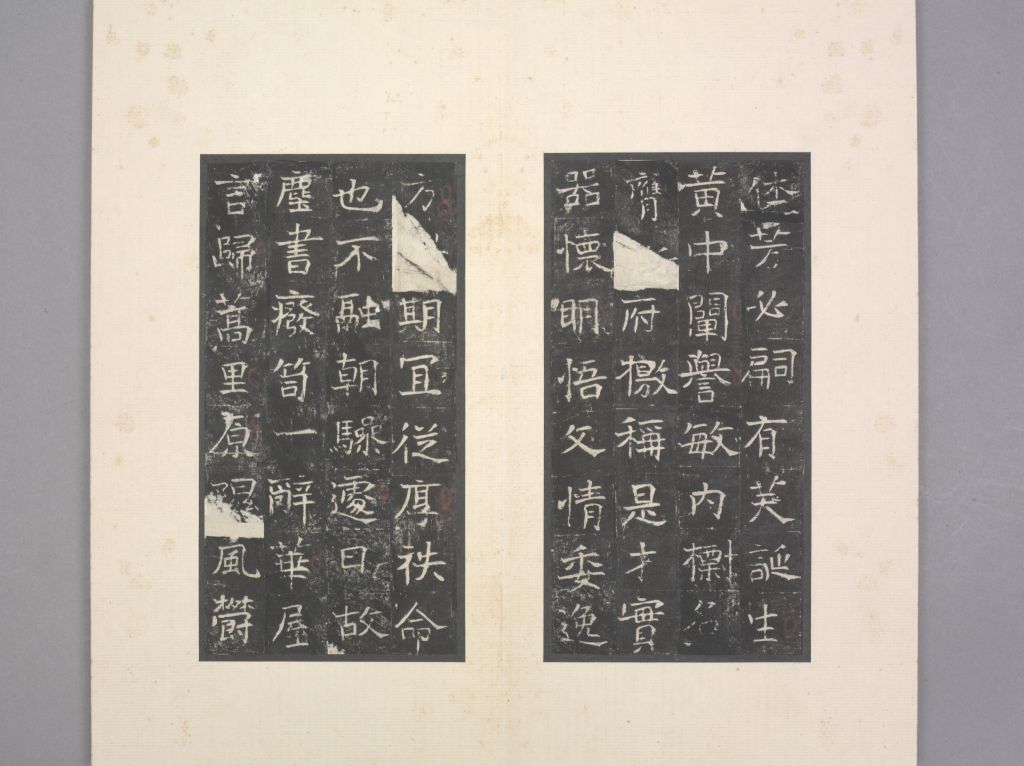 佳芳必嗣有芙誕生
黃中闡譽敏內㯹名
膺府檄稱是才實
器懷明悟文情委逸
方期宜從厚秩命
也不融朝驂遽日故
塵書廢笥一辭華屋
言歸蒿里原隰風欝